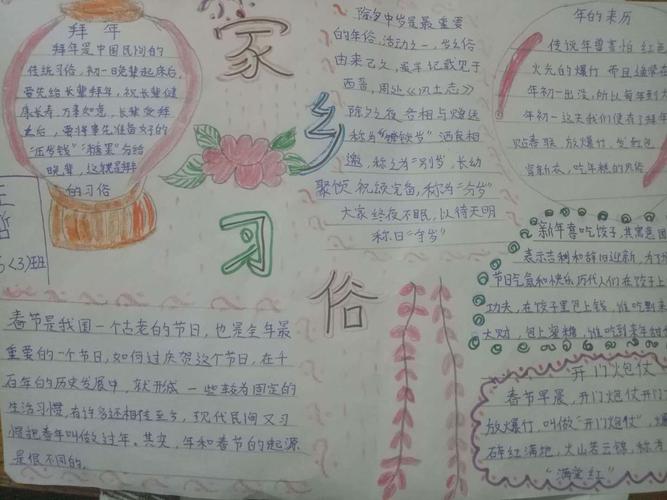 家
乡
习
俗
拜年
拜年是中国民间的
传统习俗,初一晚辈起床后,
要先给长辈拜年,祝长辈健
康长寿,万事如意,长辈受拜
之后,要将事先准备好的
“压岁钱”“糖果”分给
晚辈,这就是拜
的习俗
(3)班
除夕中岁是最重要
的年俗活动之一,岁俗
由来已久,最早记载见于
西晋,周处《风土志》
除夕之夜各相与赠送
称为“馈岁”酒食相
邀,称为“别岁”,长幼
聚饮祝颂完备,称为“分岁”
大家终夜不眠,以待天明
称曰“守岁”
年的来历
传说年兽害怕红色
火光的爆竹而且通常在
年初一出没,所以每年到
年初一这天我们便有了拜年
贴春联,放爆竹,发红包
穿新衣,吃年糕的风俗
新年喜吃饺子,其寓意团
表示吉利和辞旧迎新,为了
节日气氛和快乐历代人们在饺子
功夫,在饺子里包上钱,谁吃到来
大财,包上蜜糖,谁吃到来年甜
春节是我国一个古老的节日,也是全年最
重要的一个节日,如何过庆贺这个节日,在千
百年的历史发展中,就形成一些较为固定的
生活习惯,有许多还相传至今,现代民间又习
惯把春年叫做过年。其实,年和春节的起源
是很不同的。
开门炮仗
春节早晨,开门炮仗开门
放爆竹,叫做“开门炮仗”,爆
碎红满地,火山若云锦,称为
“满堂红”